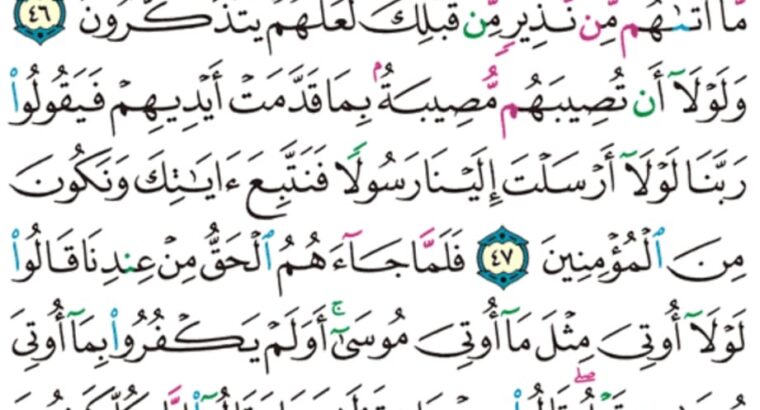 مَّآ أَتَىٰهُم مِّن نَّذِيرٍ مِّن قَبْلِكَ لَعَلَّهُمْ يَتَذَكَّرُونَ ٤٦
وَلَوْلَآ أَن تُصِيبَهُم مُّصِيبَةُۢ بِمَا قَدَّمَتْ أَيْدِيهِمْ فَيَقُولُوا۟
رَبَّنَا لَوْلَآ أَرْسَلْتَ إِلَيْنَا رَسُولًا فَنَتَّبِعَ ءَايَٰتِكَ وَنَكُونَ
مِنَ ٱلْمُؤْمِنِينَ ٤٧ فَلَمَّا جَآءَهُمُ ٱلْحَقُّ مِنْ عِندِنَا قَالُوا۟
لَوْلَآ أُوتِىَ مِثْلَ مَآ أُوتِىَ مُوسَىٰٓ ۚ أَوَلَمْ يَكْفُرُوا۟ بِمَآ أُوتِىَ